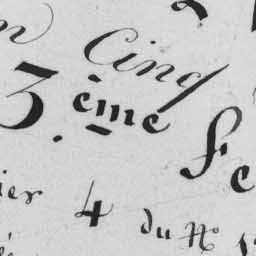 n Cinq
3.ème fe
ier 4 du N°